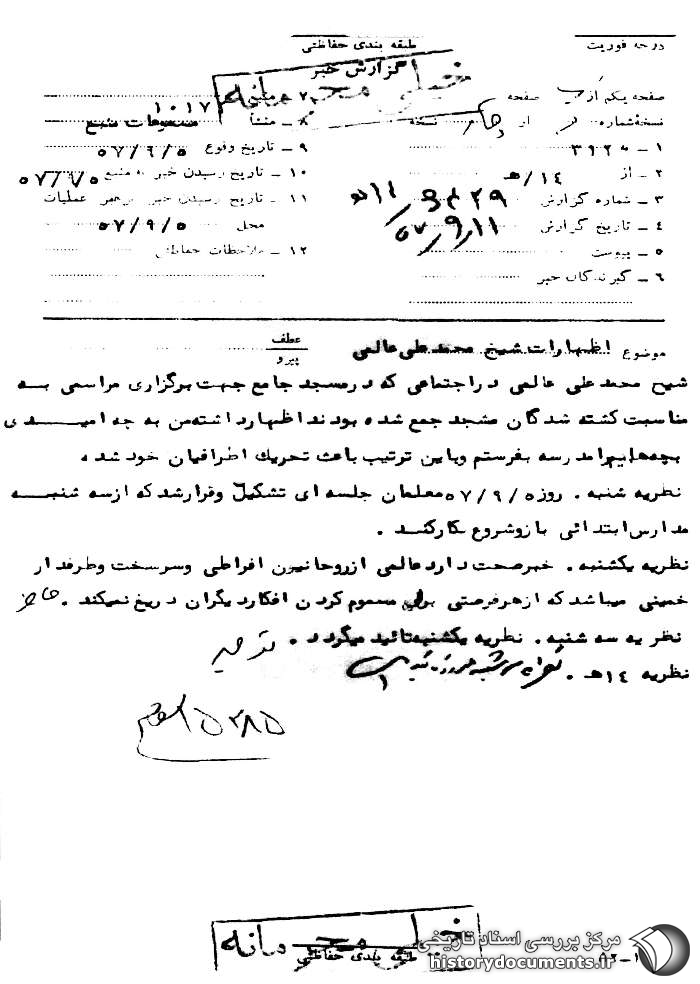 درجه فوریت
طبقه بندی حفاظتی
گزارش خبر
خیلی محرمانه
صفحه یکم از صفحه
نسخه شماره از نسخه
۱ ــ به ۳۱۲
۲ ــ از ۱۴/هـ
۳ ــ شماره گزارش
۴ ــ تاریخ گزارش ۵۷/۹/۱۱
۵ ــ پیوست
۶ ــ گیرندگان خبر
۷ ــ منبع ۱۰۱۷
۸ ــ منشأ مسموعات منبع
۹ ــ تاریخ وقوع ۵۷/۹/۵
۱۰ ــ تاریخ رسیدن خبر به منبع ۵۷/۹/۵
۱۱ ــ تاریخ رسیدن خبر برهبر عملیات
محل ۵۷/۹/۵
۱۲ ــ ملاحظات حفاظتی
موضوع اظهارات شیخ محمدعلی عالمی
عطف
پیرو
شیخ محمد علی عالمی دراجتماعی که درمسجد جامع جهت برگزاری مراسمی بـه
مناسبت کشته شدگان مشجد جمع شده بودند اظهارداشته من به چه امیـــدی
بچه هایم را مدرسه بفرستم وباین ترتیب باعث تحریک اطرافیان خود شده
نظریه شنبه . روز ۵۷/۹/۵ معلمان جلسه ای تشکیل وقرارشد که ازسه شنبـه
مدارس ابتدائی بازو شروع بکارکنند .
نظریه یکشنبه . خبرصحت دارد عالمی ازروحانیون افراطی وسرسخت وطرفدار
خمینی میباشد که ازهرفرصتی برای مسموم کردن افکاردیگران دریغ نمیکند .
نظریه سه شنبه . نظریه یکشنبه تائید میگردد .
نظریه ۱۴هـ .
خیلی محرمانه
طبقه بندی حفاظتی
مرکز بررسی اسناد تاریخی
historydocuments.ir